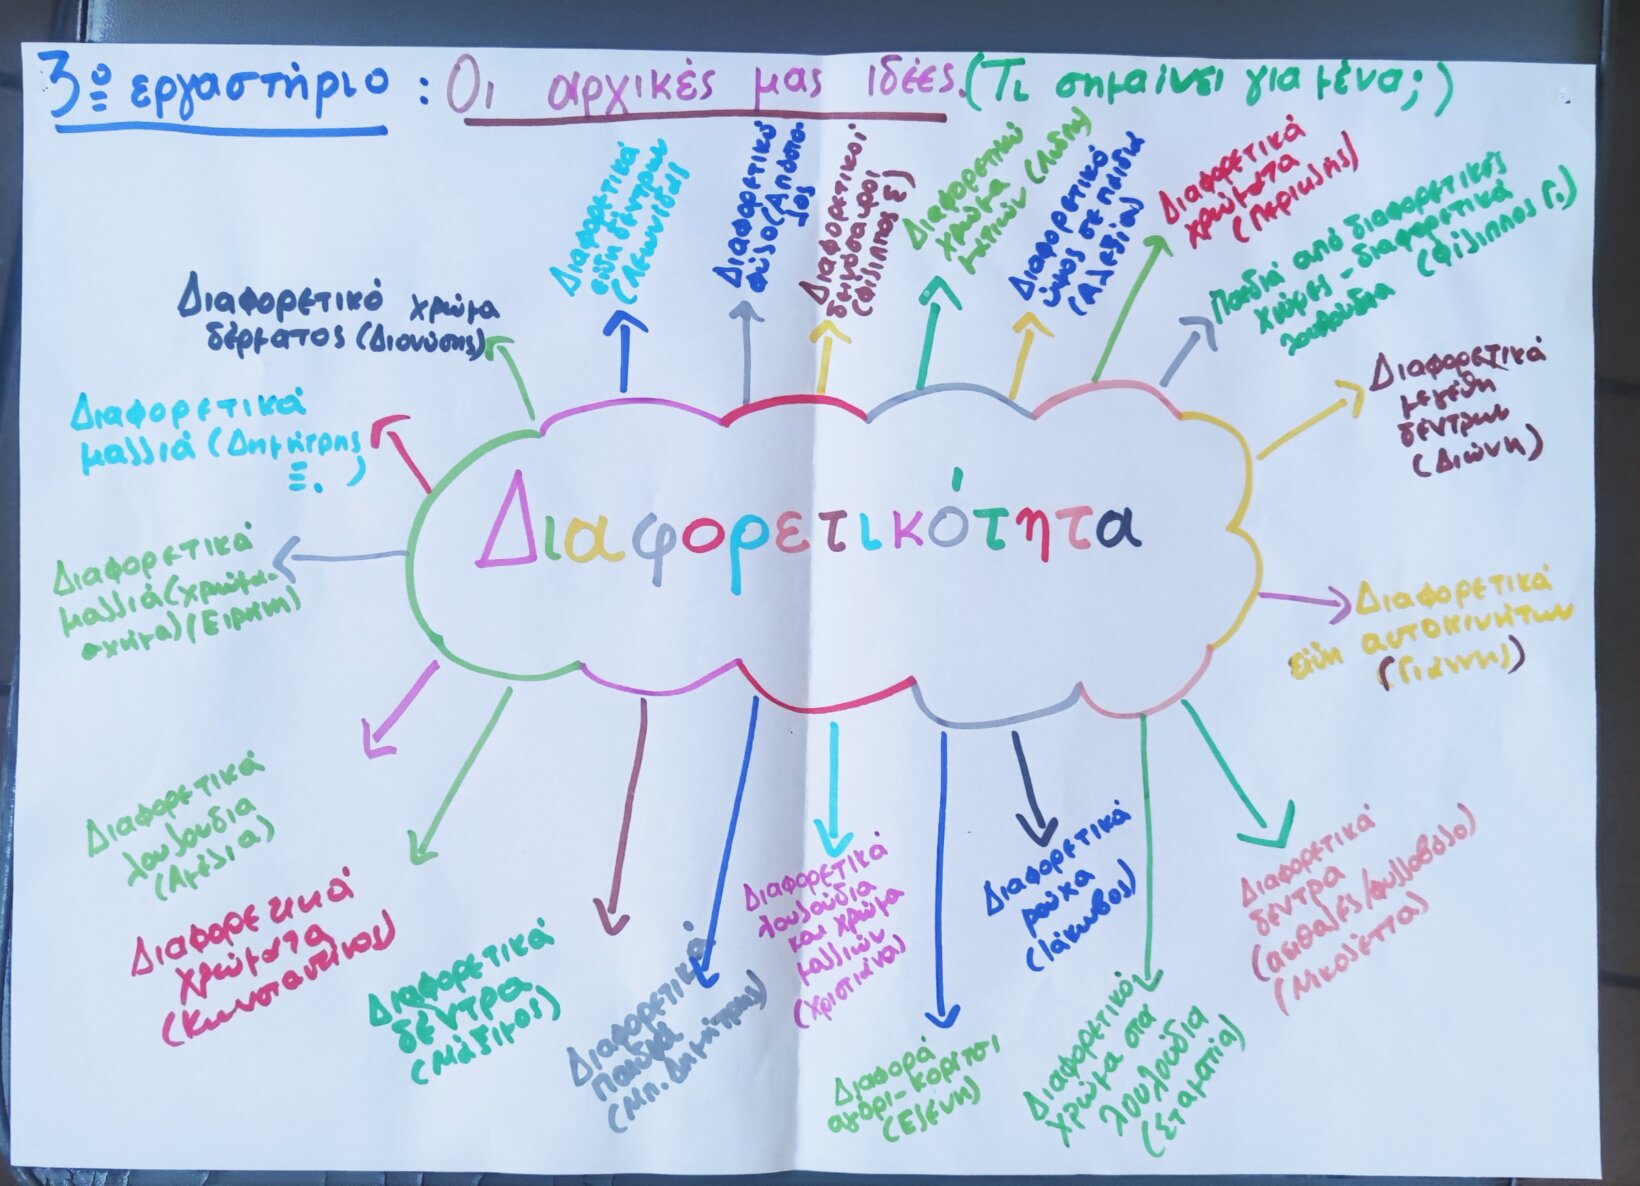 3ο εργαστήριο : Οι αρχικές μας ιδέες. (Τι σημαίνει για μένα;)
Διαφορετικό χρώμα
δέρματος (Διονύσης)
Διαφορετικά
είδη δέντρων
(Λεωνίδας)
Διαφορετικό
φύλο (Απόστο-
λος)
Διαφορετικοί
δεινόσαυροι
(Φίλιππος Σ)
Διαφορετικό
χρώμα
ματιών (Λυδία)
Διαφορετικό
ύψος σε παιδιά
(Αλεξία)
Διαφορετικά
χρώματα
(Περικλής)
Παιδιά από διαφορετικές
χώρες - διαφορετικά
λουλούδια (Φίλιππος Γ.)
Διαφορετικά
μεγέθη
δέντρων
(Διώνη)
Διαφορετικά
μαλλιά (Δημήτρης
Ξ. )
Διαφορετικότητα
Διαφορετικά
μαλλιά (χρώμα-
σχήμα) (Ειρήνη)
Διαφορετικά
είδη αυτοκινήτων
(Γιάννης)
Διαφορετικά
λουλούδια
(Αμέλια)
Διαφορετικά
χρώματα
(Κωνσταντίνος)
Διαφορετικά
δέντρα
(Μάξιμος)
Διαφορετικά
παιδιά
(Μπ. Δημήτρης)
Διαφορετικά
λουλούδια
και χρώμα
μαλλιών
(Χριστιάνα)
Διαφορά
αγόρι-κορίτσι
(Ελένη)
Διαφορετικά
ρούχα
(Ιάκωβος)
Διαφορετικό
χρώμα στα
λουλούδια
(Σταματία)
Διαφορετικά
δέντρα
(αειθαλές/φυλλοβόλο)
(Νικολέττα)